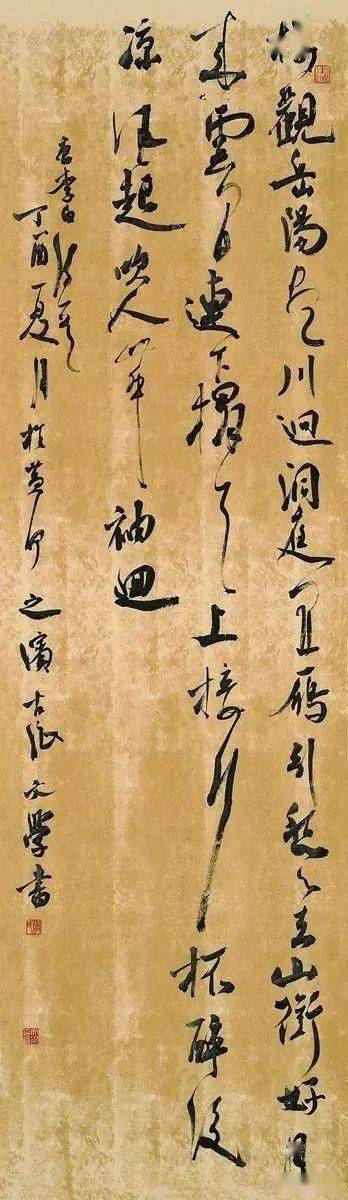 楼觀岳陽尽川迥洞庭開鴈引愁心去山銜好月
来雲間連下榻天上接行杯醉後
涼風起吹人舞袖迴
唐李白詩
丁酉夏月於黄河之濱古文學書